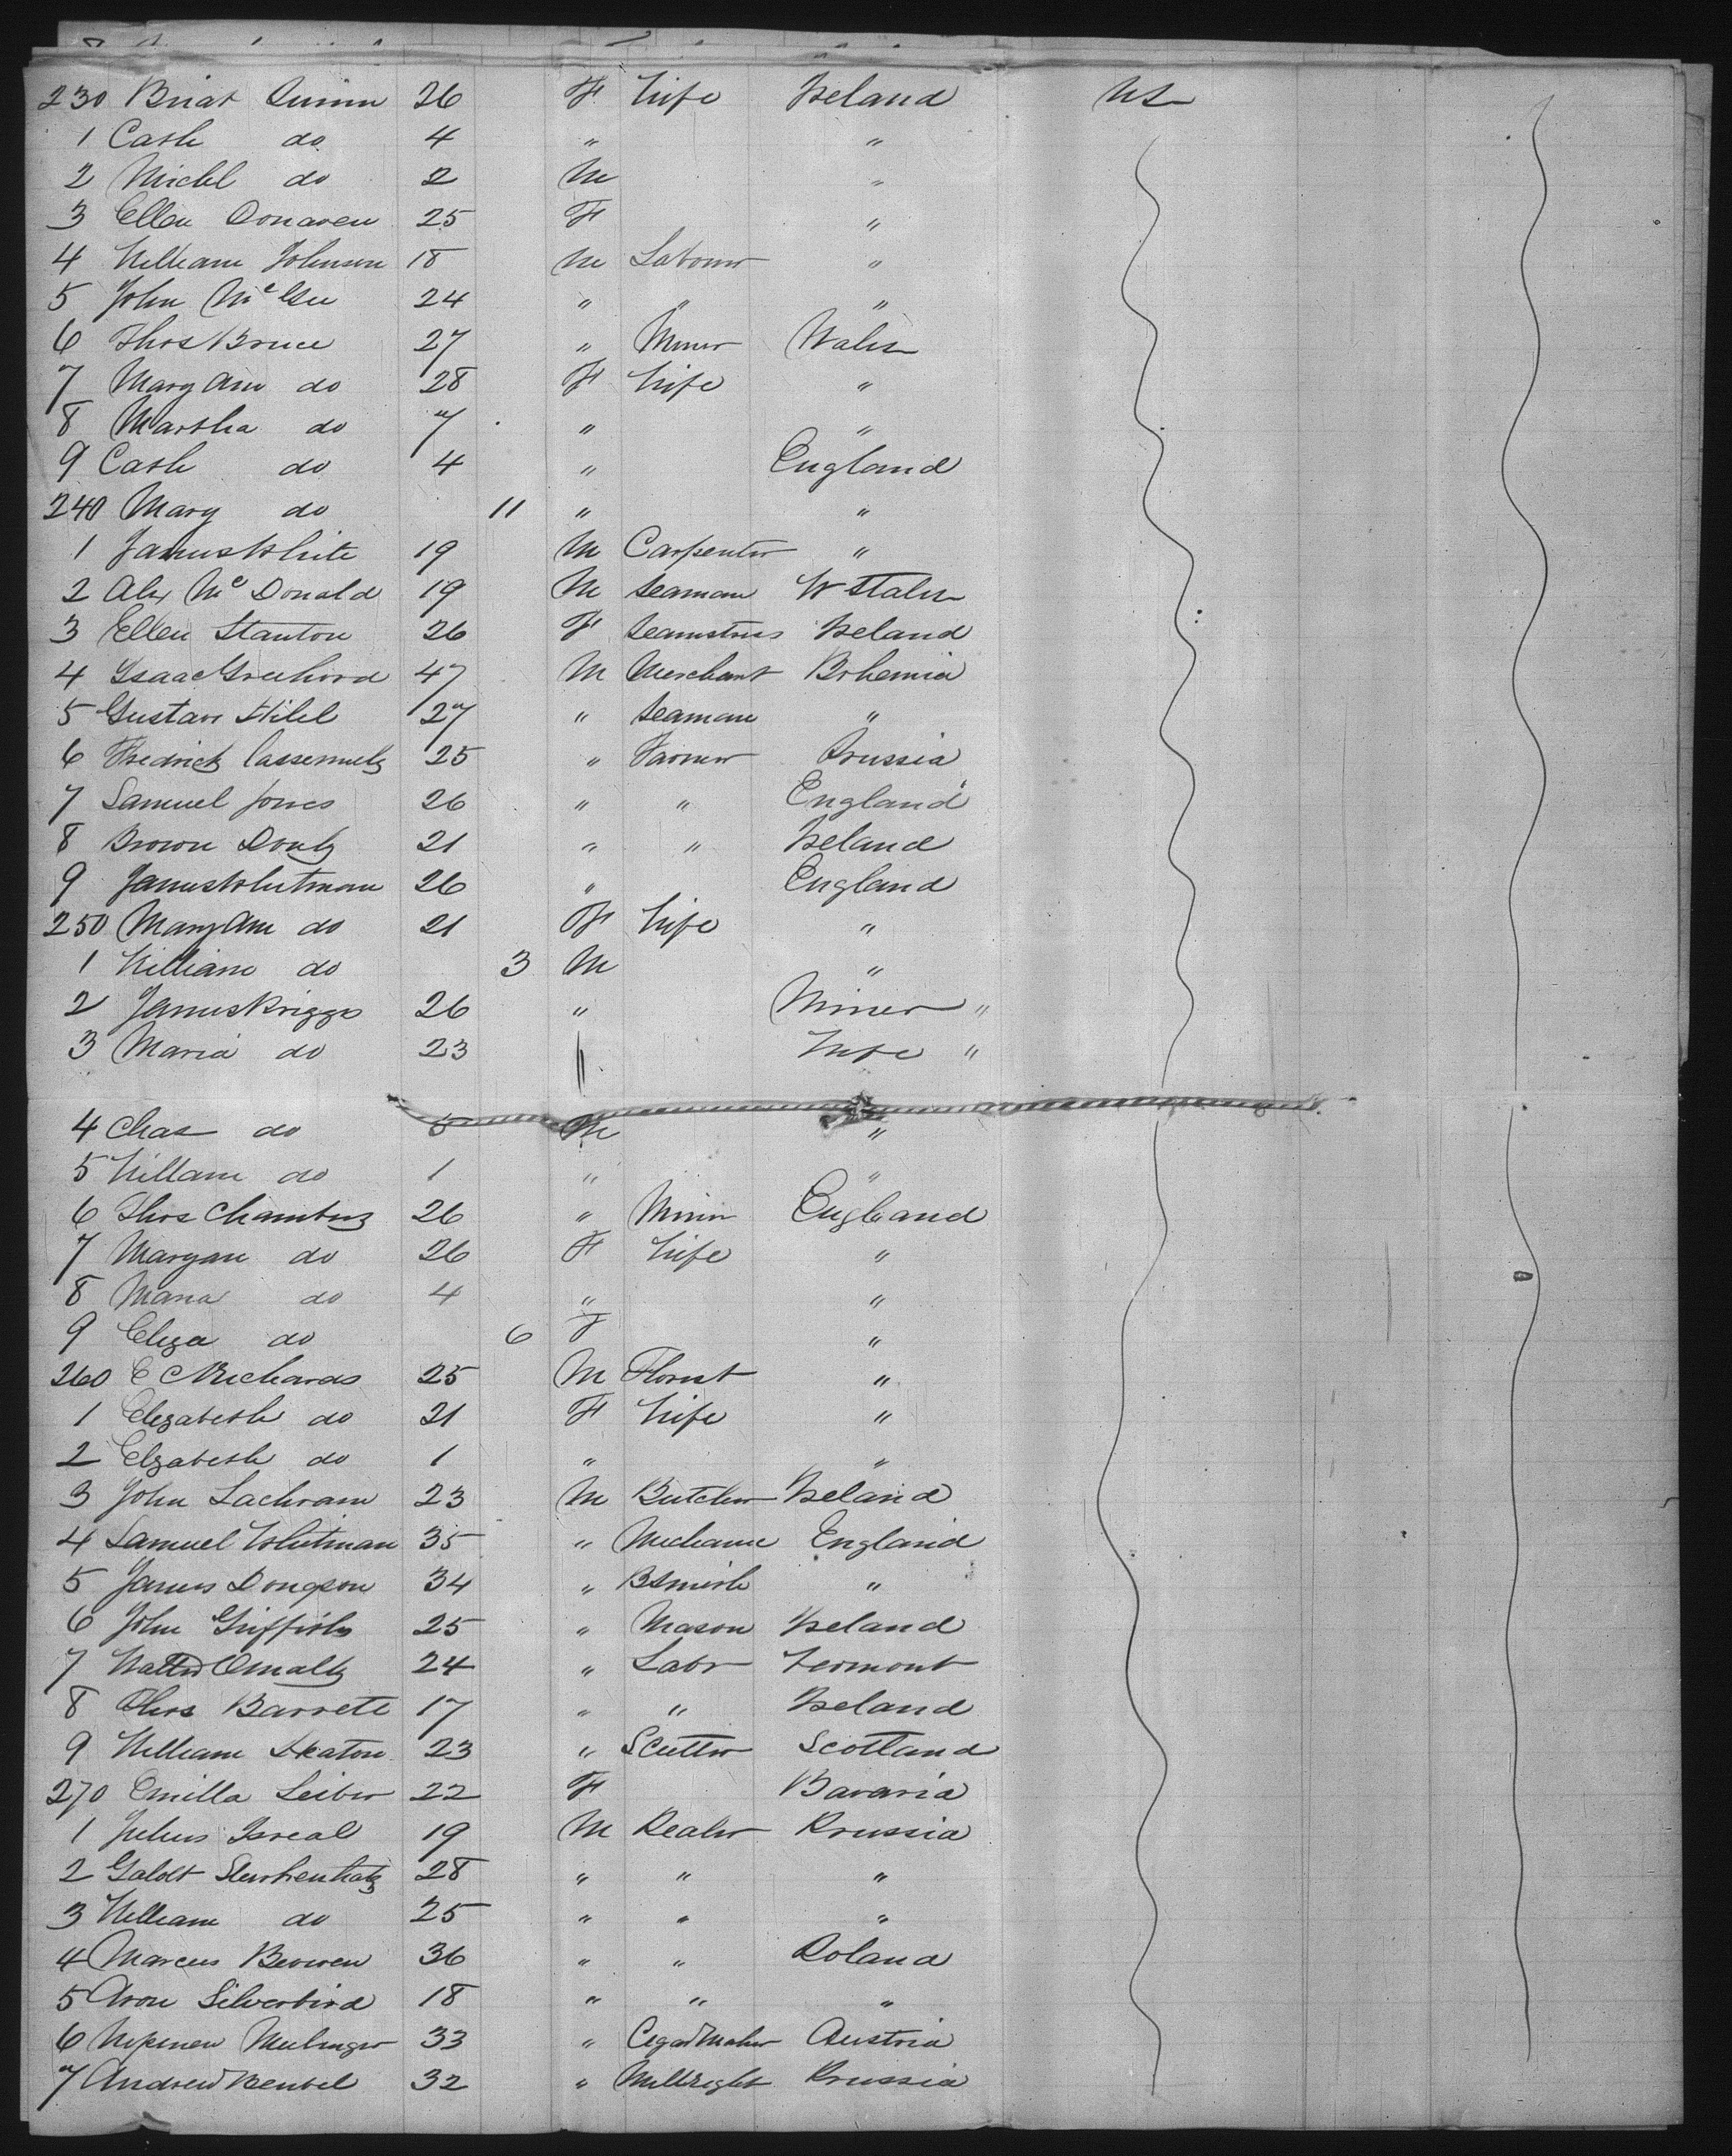 230 Briat Quinn 26 F Wife Ireland US
1 Cath do 4 " "
2 Michl do 2 M "
3 Ellen Donaven 25 F "
4 William Johnson 18 M Labourer "
5 John McGee 24 " " "
6 Thos Bruce 27 " Miner Wales
7 Mary Ann do 28 F Wife "
8 Martha do 7 " "
9 Cath do 4 " England
240 Mary do 11 " "
1 James White 19 M Carpenter "
2 Alex McDonald 19 M Seaman
3 Ellen Stanton 26 F Seamstress Ireland
4 Isaac 47 M Merchant Bohemia
5 Gustav 27 " Seaman "
6 Fredrick 25 " Farmer Prussia
7 Samuel Jones 26 " " England
8 Brown 21 " " Ireland
9 James Whitman 26 " England
250 Mary Ann do 21 F Wife "
1 William do 3 M "
2 James Briggs 26 " Miner "
3 Maria do 23 Wife "
4 Chas do 5 M "
5 William do 1 " "
6 Thos Chambers 26 " Miner England
7 Maryan do 26 F Wife "
8 Maria do 4 " "
9 Eliza do 6 F "
260 E C Richards 25 M Florist "
1 Elizabeth do 21 F Wife "
2 Elizabeth do 1 " "
3 John 23 M Butcher Ireland
4 Samuel Whitman 35 " Mechanic England
5 James 34 " BSmith "
6 John Griffiths 25 " Mason Ireland
7 24 " Labr Vermont
8 Thos Barrett 17 " " Ireland
9 William Heaton 23 " SCutter Scotland
270 Emilla Leiber 22 F Bavaria
1 Julius Isreal 19 M Dealer Prussia
2 28 " " "
3 William do 25 " " "
4 Marcus 36 " " Poland
5 Aron Silverbird 18 " " "
6 33 " Cigar Maker Austria
7 Andrew 32 " Millright Prussia